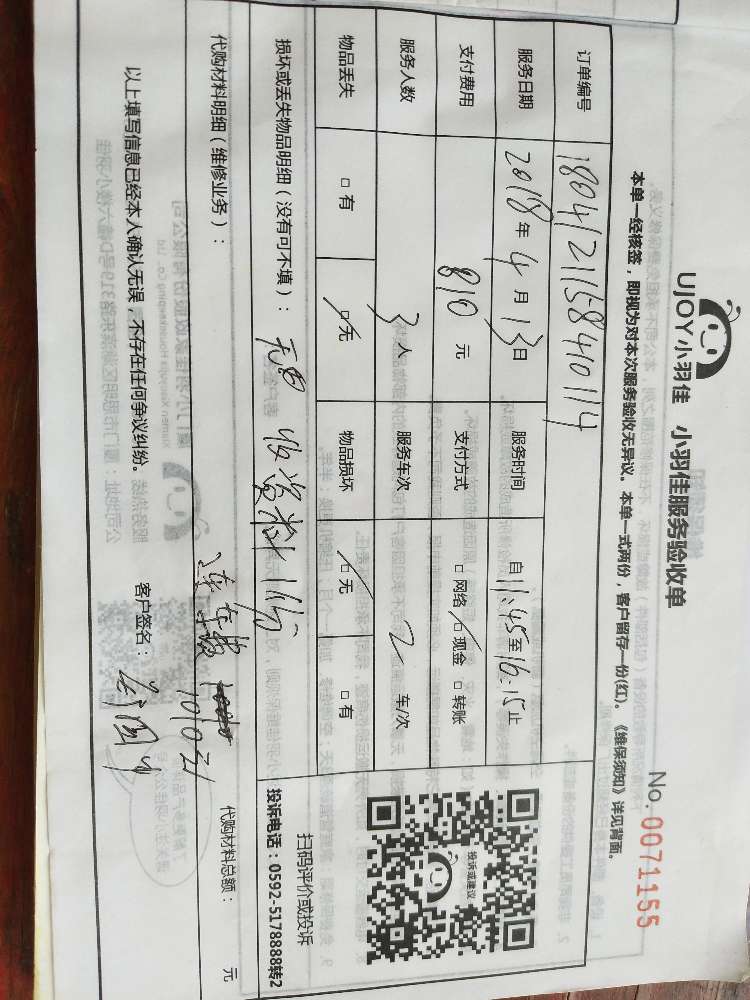 UJOY小羽佳 小羽佳服务验收单
No. 0071155
本单一经核签，即视为对本次服务验收无异议。本单一式两份，客户留存一份(红)。《维保须知》详见背面。
订单编号 180412115840114
服务日期 2018年4月13日 服务时间 自11:45至16:15止
支付费用 810元 支付方式 □网络 ☑现金 □转账
服务人数 3人 服务车次 2车/次
物品丢失 □有 ☑无 物品损坏 ☑无 □有
投诉或建议
扫码评价或投诉
投诉电话：0592-5178888转2
损坏或丢失物品明细（没有可不填）：
代购材料明细（维修业务）： 1010元
代购材料总额： 元
以上填写信息已经本人确认无误，不存在任何争议纠纷。 客户签名：